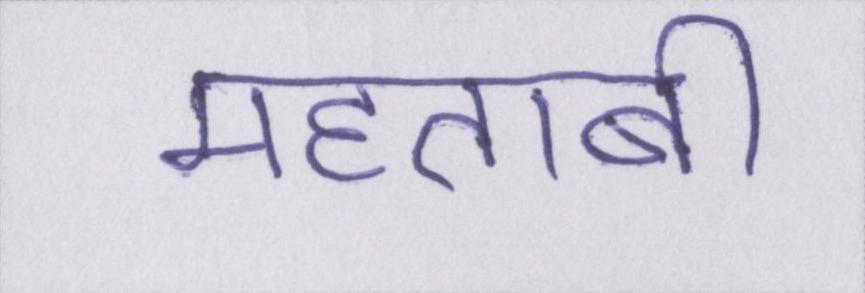 महताबी